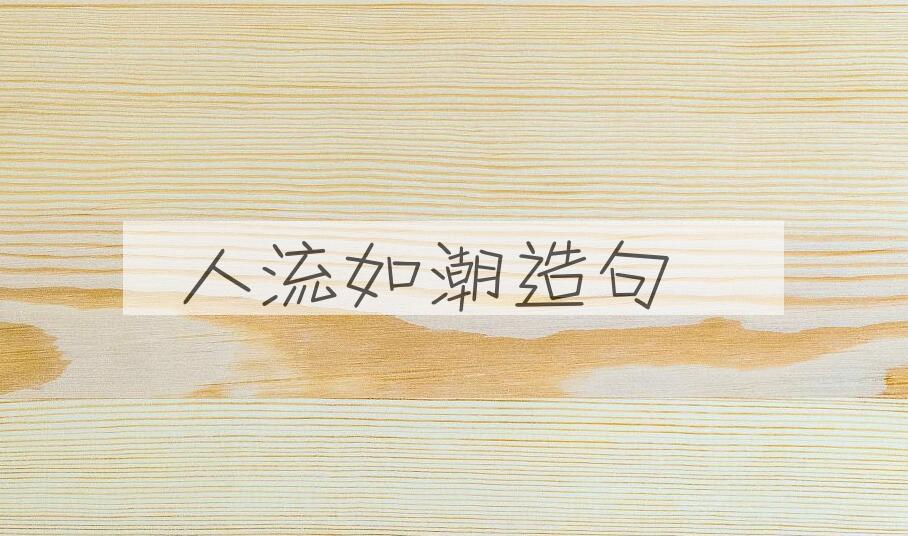 人流如潮造句